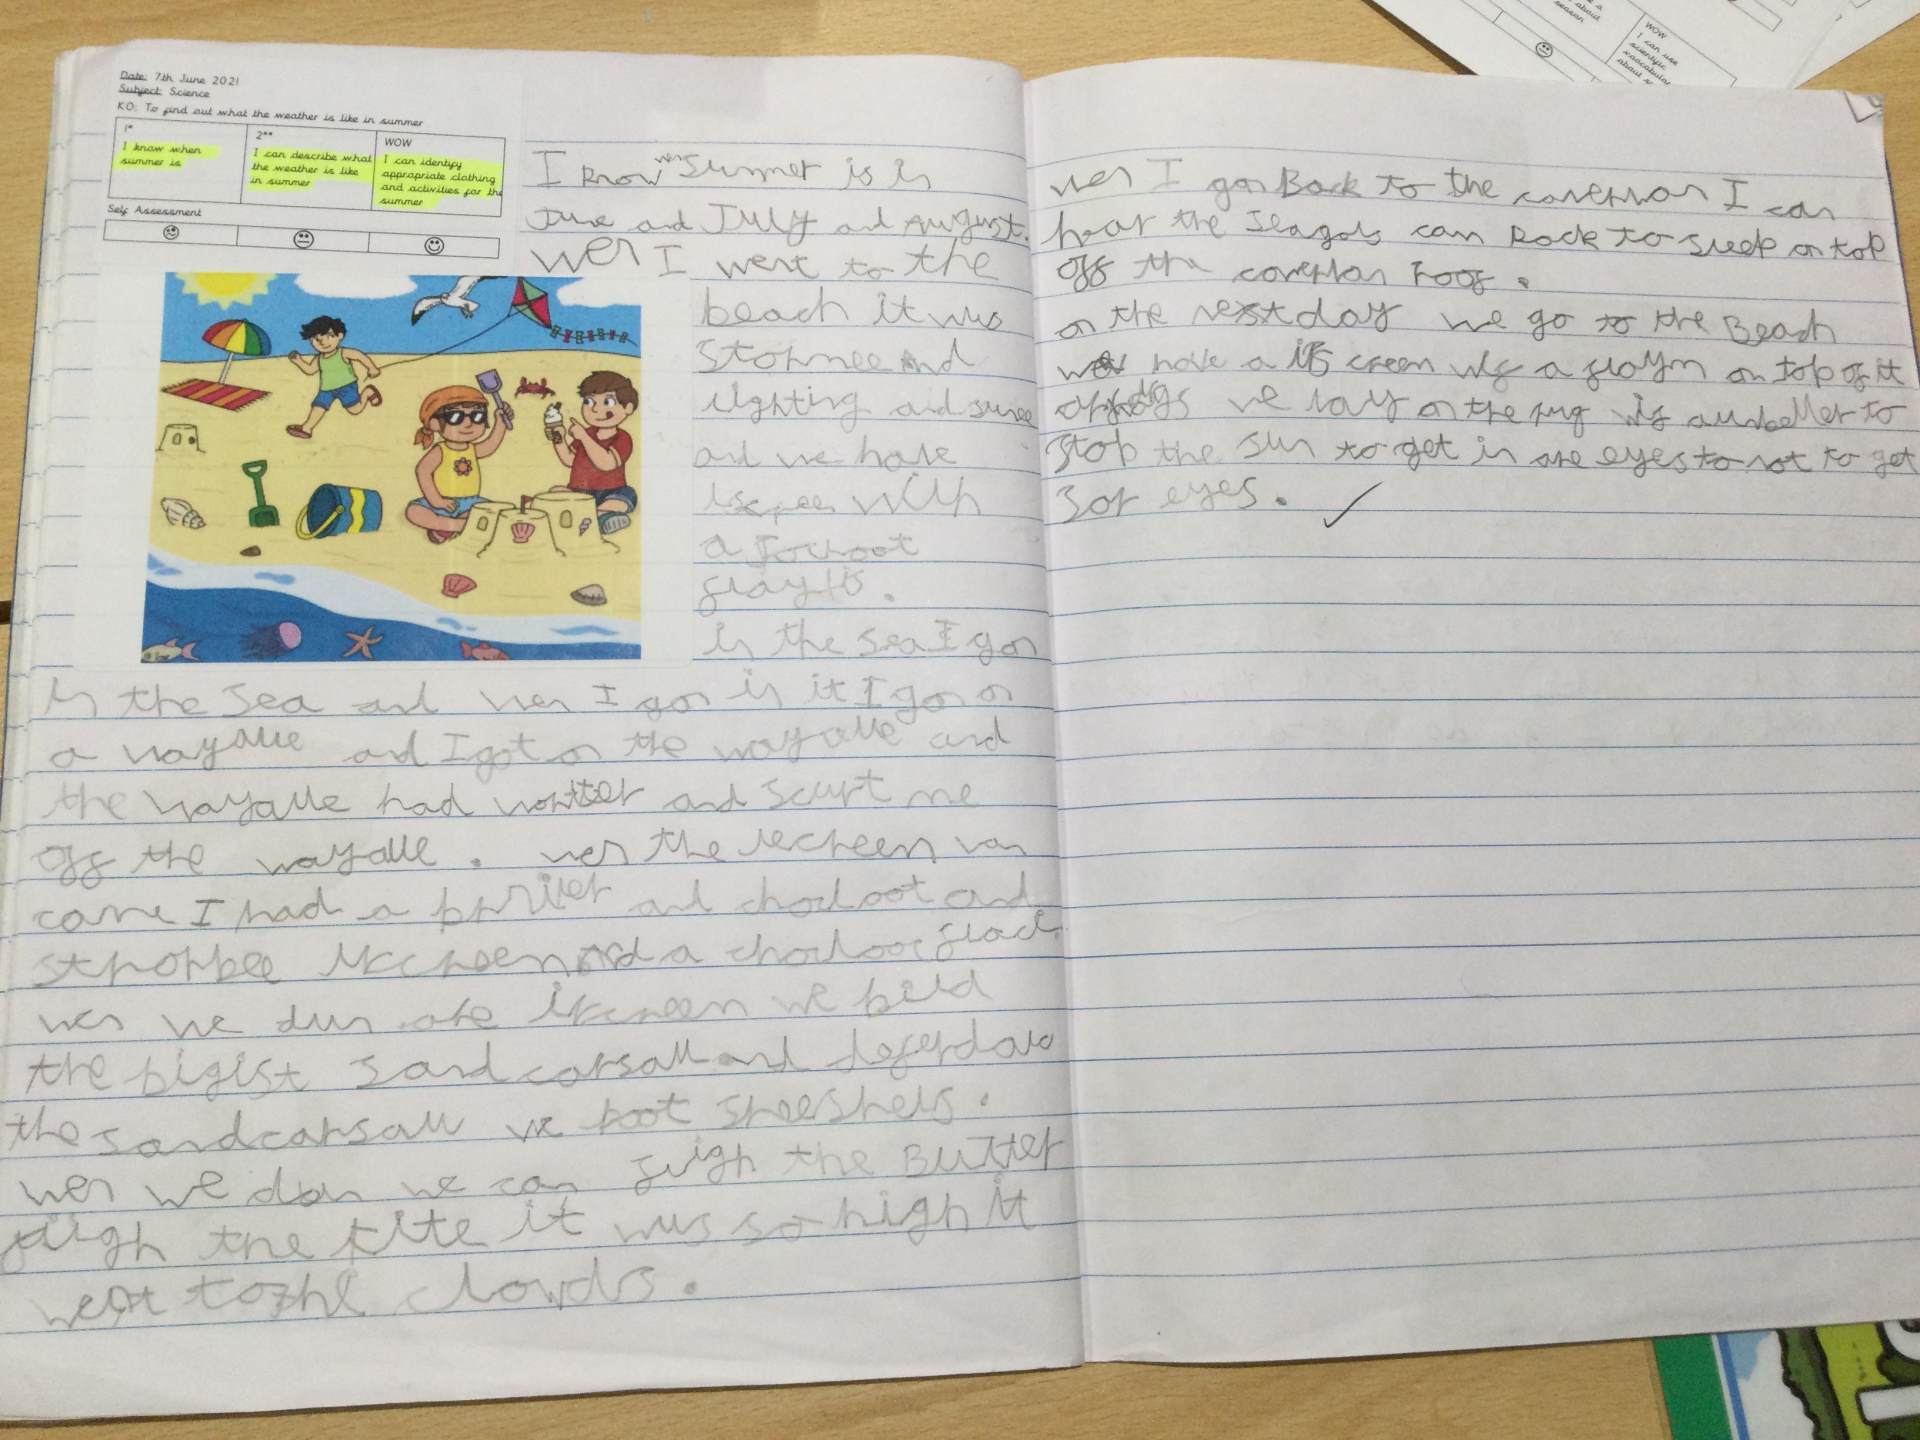 Date: 7th June 2021
Subject: Science
KO: To find out what the weather is like in summer
1*
I know when
summer is
2**
I can describe what
the weather is like
in summer
WOW
I can identify
appropriate clothing
and activities for the
summer
Self Assessment
I know wen summer is in
June and July and August.
wen I went to the
beach it was
stormee and
lighting and sunee
and we have
with
a
in the sea I gon
in the sea and wen I gon in it I gon on
a wayalle and I got on the wayalle and
the wayalle had wortter and scurt me
off the wayalle. wen the iecreen van
came I had a and chocloot and
a
wen we dun are we bild
the bigist sand carsall and
the sandcarsall we poot sheeshels.
wen we don we can fuigh the Butter
fligh the kite it wus so high it
went to the clowds.
wen I gon Back to the coreffron I can
hear the Seagols can Rock to sleep on top
off the roof.
on the next day we go to the Beach
we have a creem wif a on top of it
we lay on the rug wif a unbeller to
stop the sun to get in are eyes to not to get
sor eyes.
WOW
I can use
scientific
vocabulary
about
about
season